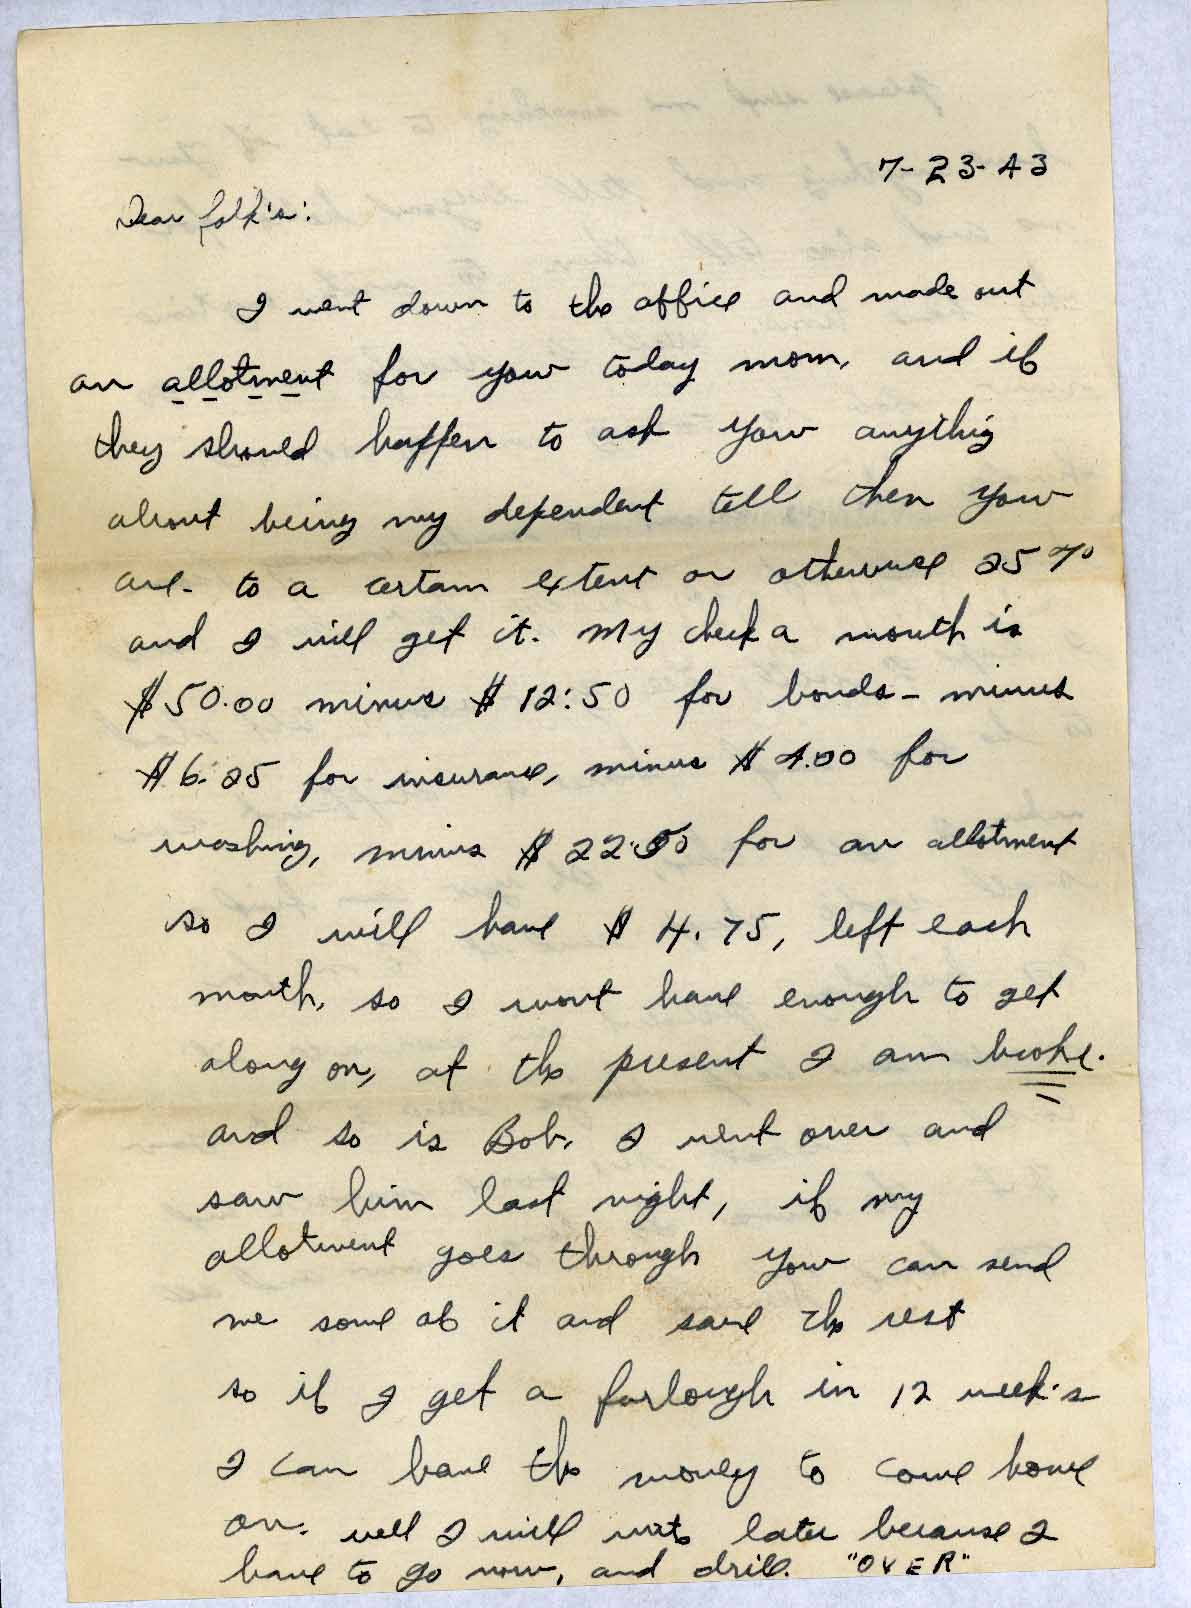 7-23-43
Dear folk's:
I went down to the office and made out
an allotment for your today mom, and if
they should happen to ask your anything
about being my dependent tell then your
are. to a certain extent or otherwise 25%
and I will get it. My check a month is
$50.00 minus $12:50 for bonds - minus
$6.25 for insurance, minus $4.00 for
washing, minus $22.50 for an allotment
so I will have $4.75, left each
month, so I wont have enough to get
along on, at the present I am broke.
and so is Bob. I went over and
saw him last night, if my
allotment goes through your can send
me some of it and save the rest
so if I get a furlough in 12 week's
I can have the money to come home
on. well I will write later because I
have to go now, and drill. "OVER"